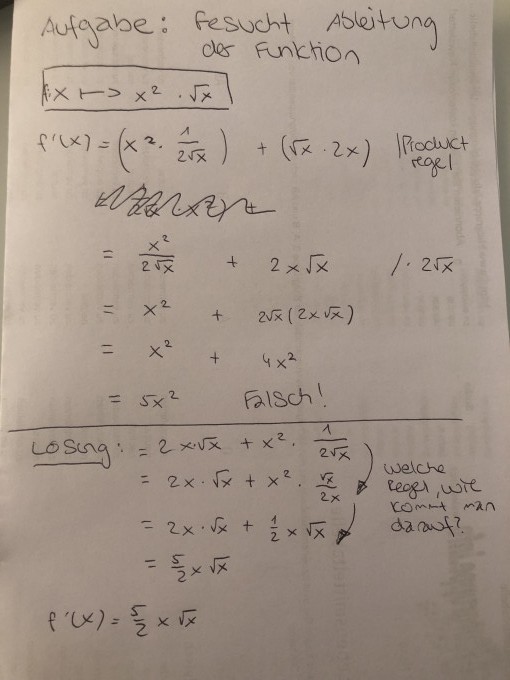 Aufgabe: Gesucht Ableitung
der Funktion
f: x ↦ x² · √x
f'(x) = (x² · 1/(2√x)) + (√x · 2x) | Product regel
= x²/(2√x) + 2x√x /· 2√x
= x² + 2√x(2x√x)
= x² + 4x²
= 5x² Falsch!
Lösung: = 2x·√x + x² · 1/(2√x)
= 2x·√x + x² · √x/(2x)
= 2x·√x + 1/2 x √x
= 5/2 x √x
welche
Regel, wie
kommt man
darauf?
f'(x) = 5/2 x √x